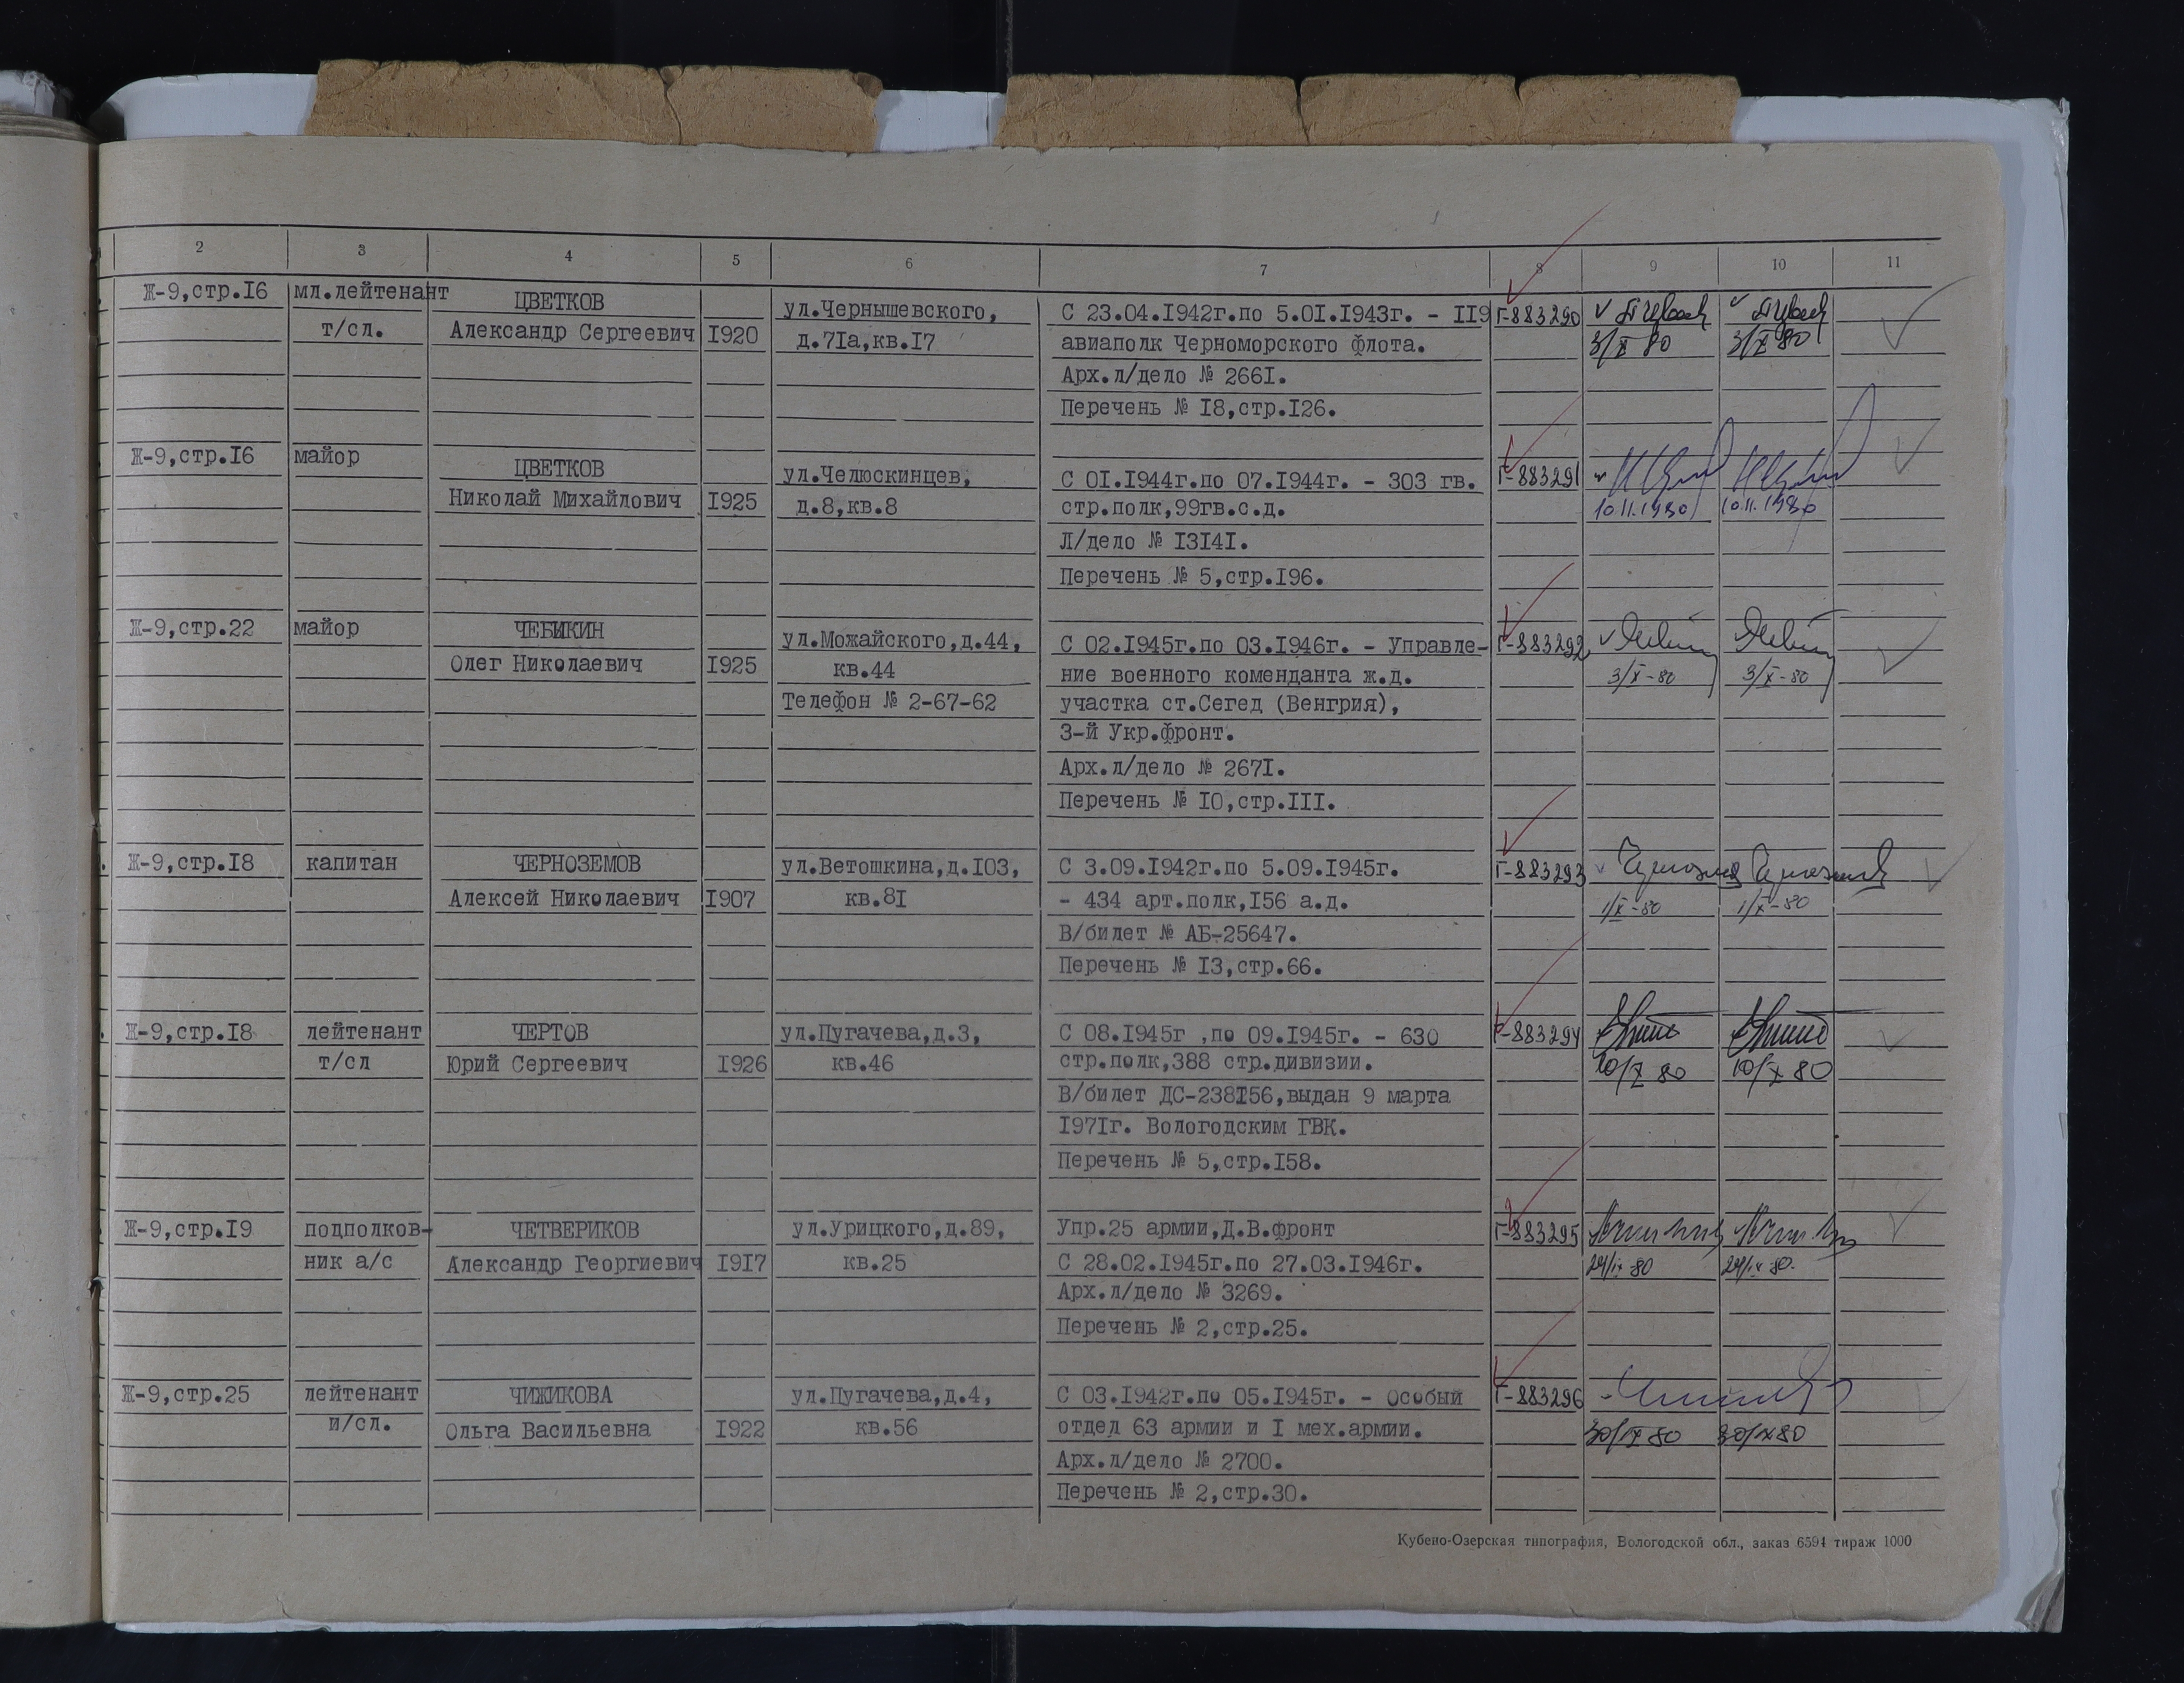 2 3 4 5 6 7 8 9 10 11
Ж-9,стр.I6 мл.лейтенант ЦВЕТКОВ ул.Чернышевского, С 23.04.I942г.по 5.0I.I943г. - II9 Г-883290
т/сл. Александр Сергеевич I920 д.7Iа,кв.I7 авиаполк Черноморского флота. 3/X 80 3/X 80
Арх.л/дело № 266I.
Перечень № I8,стр.I26.
Ж-9,стр.I6 майор ЦВЕТКОВ ул.Челюскинцев, С 0I.I944г.по 07.I944г. - 303 гв. Г-883291
Николай Михайлович I925 д.8,кв.8 стр.полк,99гв.с.д. 10.11.1980 10.11.1980
Л/дело № I3I4I.
Перечень № 5,стр.I96.
Ж-9,стр.22 майор ЧЕБИКИН ул.Можайского,д.44, С 02.I945г.по 03.I946г. - Управле- Г-883292
Олег Николаевич I925 кв.44 ние военного коменданта ж.д. 3/X-80 3/X-80
Телефон № 2-67-62 участка ст.Сегед (Венгрия),
3-й Укр.фронт.
Арх.л/дело № 267I.
Перечень № I0,стр.III.
Ж-9,стр.I8 капитан ЧЕРНОЗЕМОВ ул.Ветошкина,д.I03, С 3.09.I942г.по 5.09.I945г. Г-883293
Алексей Николаевич I907 кв.8I - 434 арт.полк,I56 а.д. 1/X-80 1/X-80
В/билет № АБ-25647.
Перечень № I3,стр.66.
Ж-9,стр.I8 лейтенант ЧЕРТОВ ул.Пугачева,д.3, С 08.I945г ,по 09.I945г. - 630 Г-883294
т/сл Юрий Сергеевич I926 кв.46 стр.полк,388 стр.дивизии. 10/X 80 10/X 80
В/билет ДС-238I56,выдан 9 марта
I97Iг. Вологодским ГВК.
Перечень № 5,стр.I58.
Ж-9,стр.I9 подполков- ЧЕТВЕРИКОВ ул.Урицкого,д.89, Упр.25 армии,Д.В.фронт Г-883295
ник а/с Александр Георгиевич I9I7 кв.25 С 28.02.I945г.по 27.03.I946г. 29/IX 80 29/IX 80.
Арх.л/дело № 3269.
Перечень № 2,стр.25.
Ж-9,стр.25 лейтенант ЧИЖИКОВА ул.Пугачева,д.4, С 03.I942г.по 05.I945г. - Особый Г-883296
и/сл. Ольга Васильевна I922 кв.56 отдел 63 армии и I мех.армии. 30/IX 80 30/IX 80
Арх.л/дело № 2700.
Перечень № 2,стр.30.
Кубено-Озерская типография, Вологодской обл., заказ 6594 тираж 1000